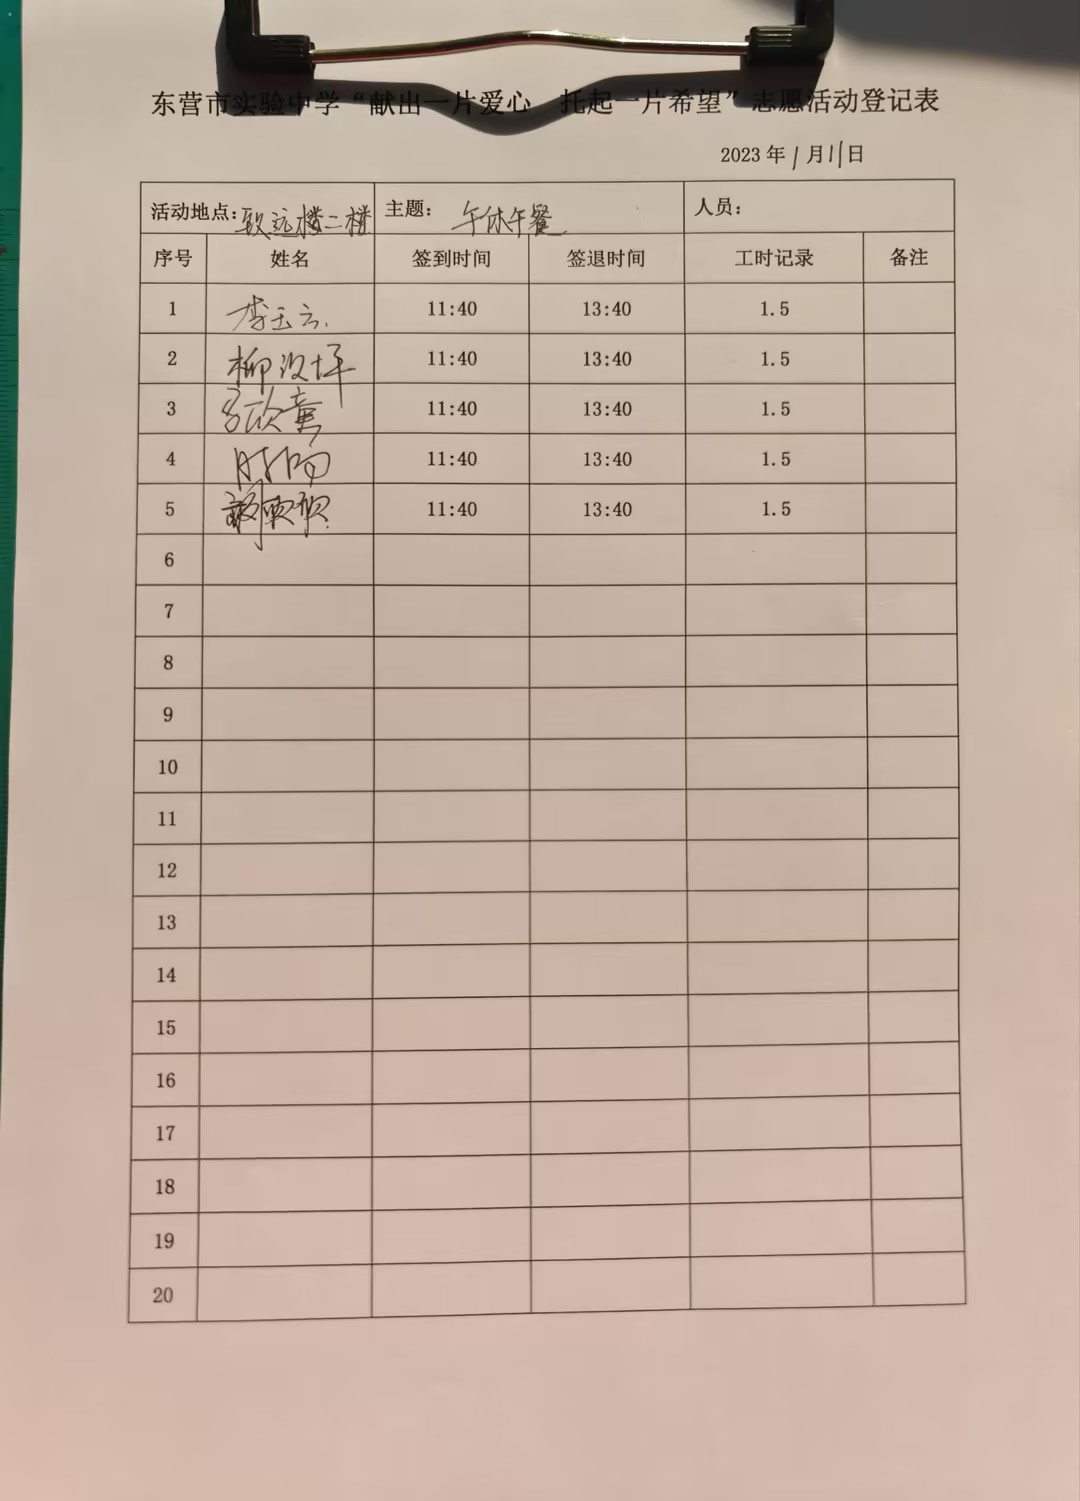 东营市实验中学“献出一片爱心 托起一片希望”志愿活动登记表
2023 年 1 月 11 日
活动地点：致远楼二楼 主题： 午休午餐 人员：
序号 姓名 签到时间 签退时间 工时记录 备注
1 李玉云 11:40 13:40 1.5
2 柳汶坪 11:40 13:40 1.5
3 欣童 11:40 13:40 1.5
4 11:40 13:40 1.5
5 11:40 13:40 1.5
6
7
8
9
10
11
12
13
14
15
16
17
18
19
20